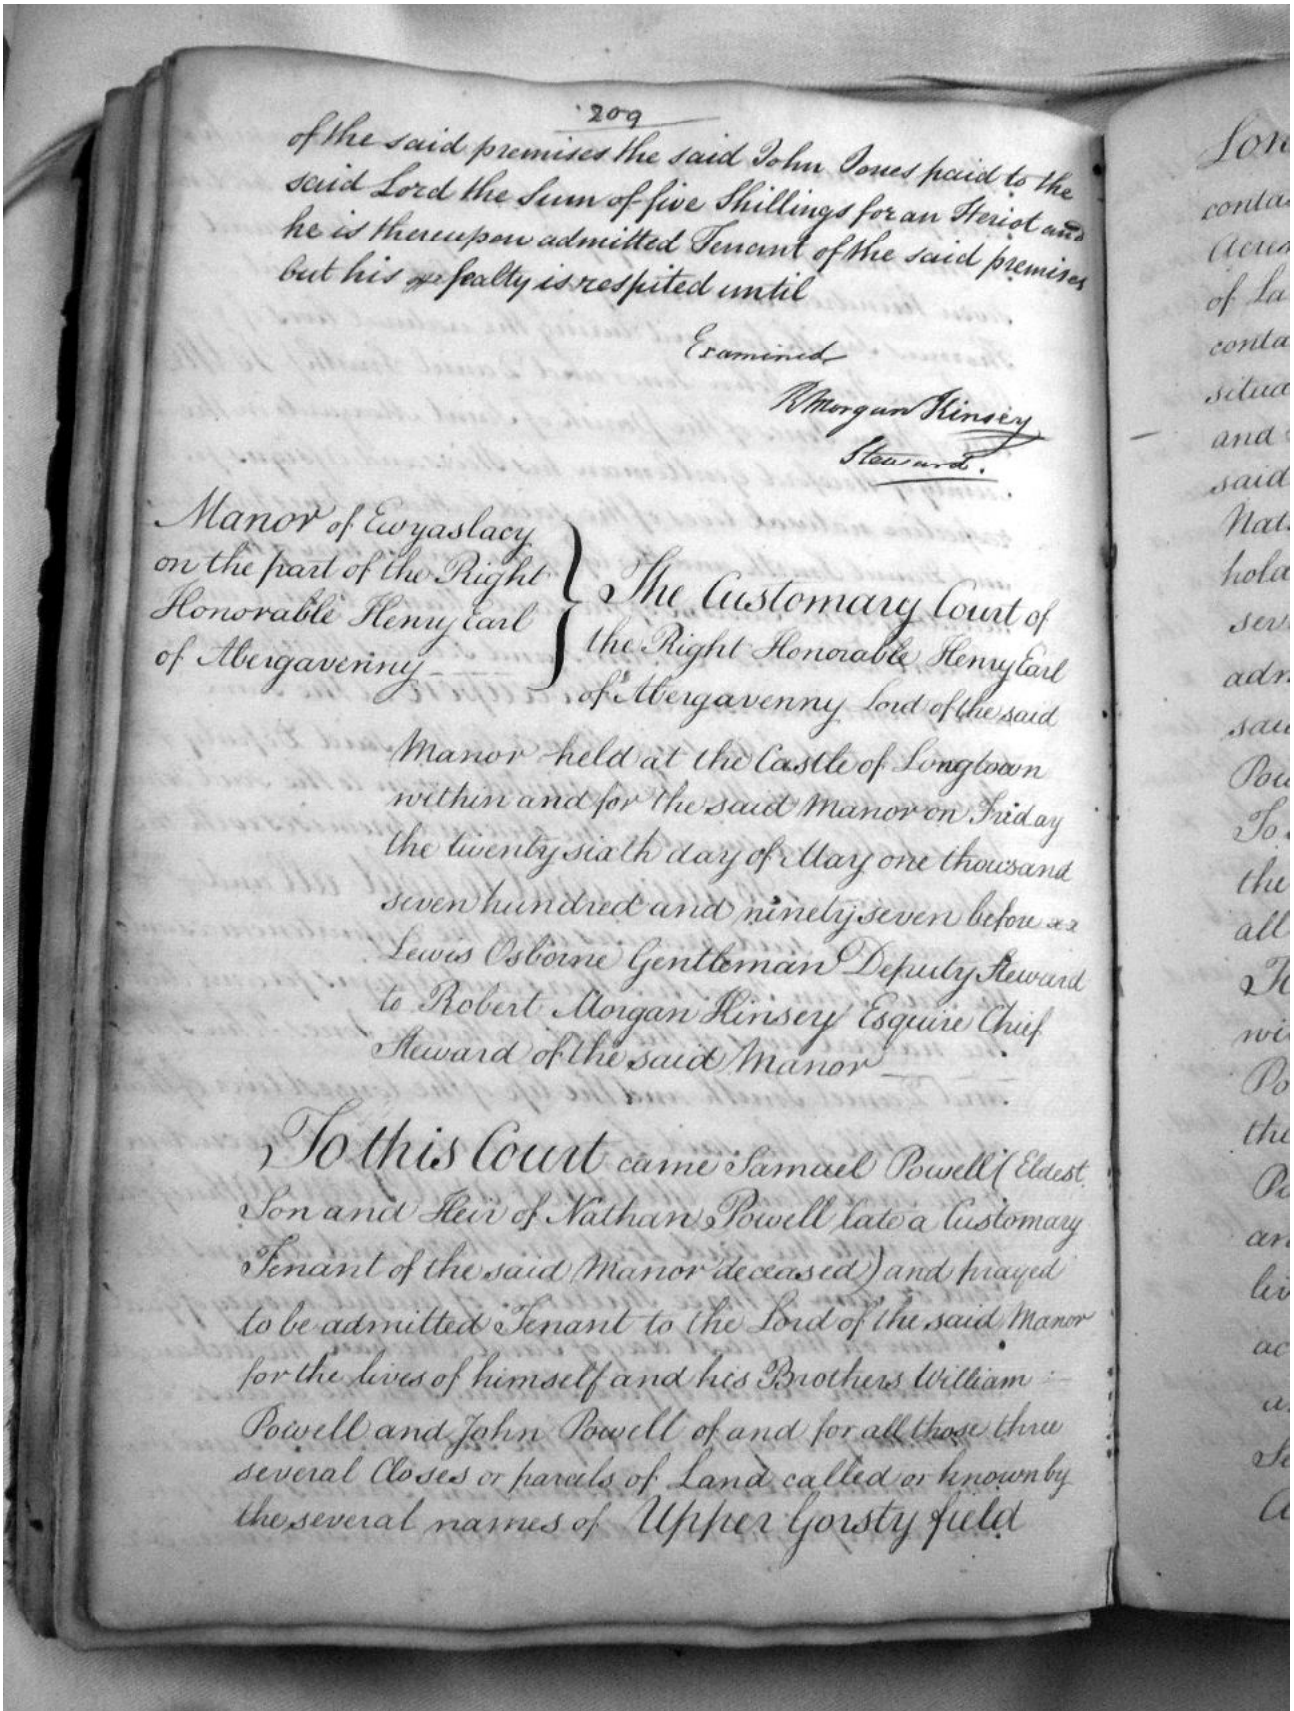 209
of the said premises the said John Jones paid to the
said Lord the Sum of five Shillings for an Heriot and
he is thereupon admitted Tenant of the said premises
but his fealty is respited until
Examined
R Morgan Kinsey
Steward.
Manor of Ewyaslacy
on the part of the Right
Honorable Henry Earl
of Abergavenny
The Customary Court of
the Right Honorable Henry Earl
of Abergavenny Lord of the said
Manor held at the Castle of Longtown
within and for the said Manor on Friday
the twenty sixth day of May one thousand
seven hundred and ninety seven before
Lewis Osborne Gentleman Deputy Steward
to Robert Morgan Kinsey Esquire Chief
Steward of the said Manor
To this Court came Samuel Powell (Eldest
Son and Heir of Nathan Powell late a Customary
Tenant of the said Manor deceased) and prayed
to be admitted Tenant to the Lord of the said Manor
for the lives of himself and his Brothers William
Powell and John Powell of and for all those three
several Closes or parcels of Land called or known by
the several names of Upper Gorsty field
conta
Acres
of La
conta
situa
and
said
Nat
hold
ser
adm
said
Pow
To
the
all
To
wi
Po
the
Po
an
liv
ac